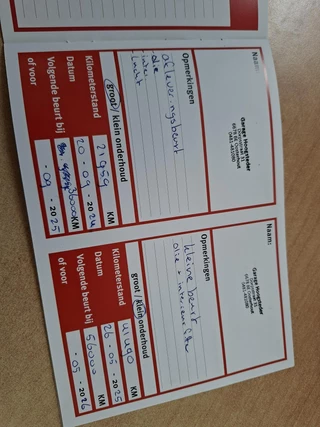 Naam:
Garage Hoogsteder
Opmerkingen
afleveringsbeurt
olie
interieur
lucht
(groot)/ klein onderhoud
Kilometerstand 21959 KM
Datum 20 - 09 - 2024
Volgende beurt bij 36000 KM
of voor - 09 - 2025
Naam:
Garage Hoogsteder
Opmerkingen
kleine beurt
olie + interieurfilter
groot / klein onderhoud
Kilometerstand KM
Datum 26 - 05 - 2025
Volgende beurt bij 56000 KM
of voor - 05 - 2026